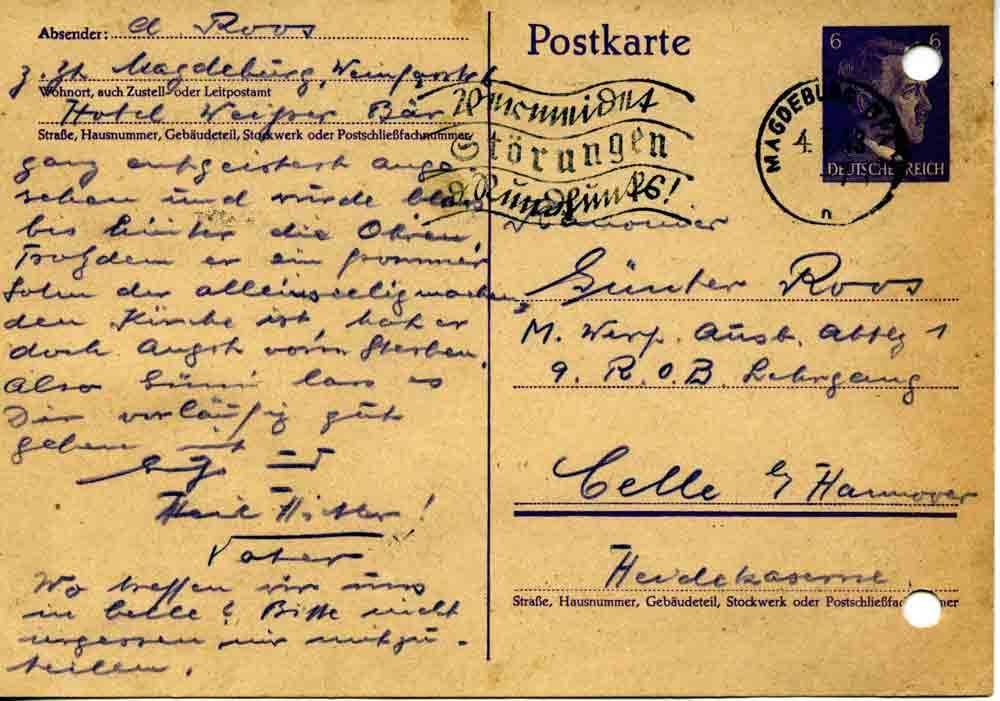 Absender: A. Roos
z. Zt. Magdeburg,
Wohnort, auch Zustell- oder Leitpostamt
Hotel Weißer Bär
Straße, Hausnummer, Gebäudeteil, Stockwerk oder Postschließfachnummer
ganz entgeistert ange
sehen und wurde blass
bis hinter die Ohren.
Trotzdem er ein frommer
Sohn der alleinseeligmachen
den Kirche ist, hat er
doch Angst vorm Sterben.
Also Günni lass es
Dir vorläufig gut
gehen mit
Heil Hitler!
Vater
Wo treffen wir uns
in Celle? Bitte nicht
vergessen mir mitzu-
teilen.
Postkarte
6 6
DEUTSCHES REICH
MAGDEBURG
4.
n
Vermeidet
Störungen
d. Rundfunks!
Günter Roos
M. Werf. Ausb. Abtlg 1
9. R.O.B. Lehrgang
Celle b/ Hannover
Heidekaserne
Straße, Hausnummer, Gebäudeteil, Stockwerk oder Postschließfa mer